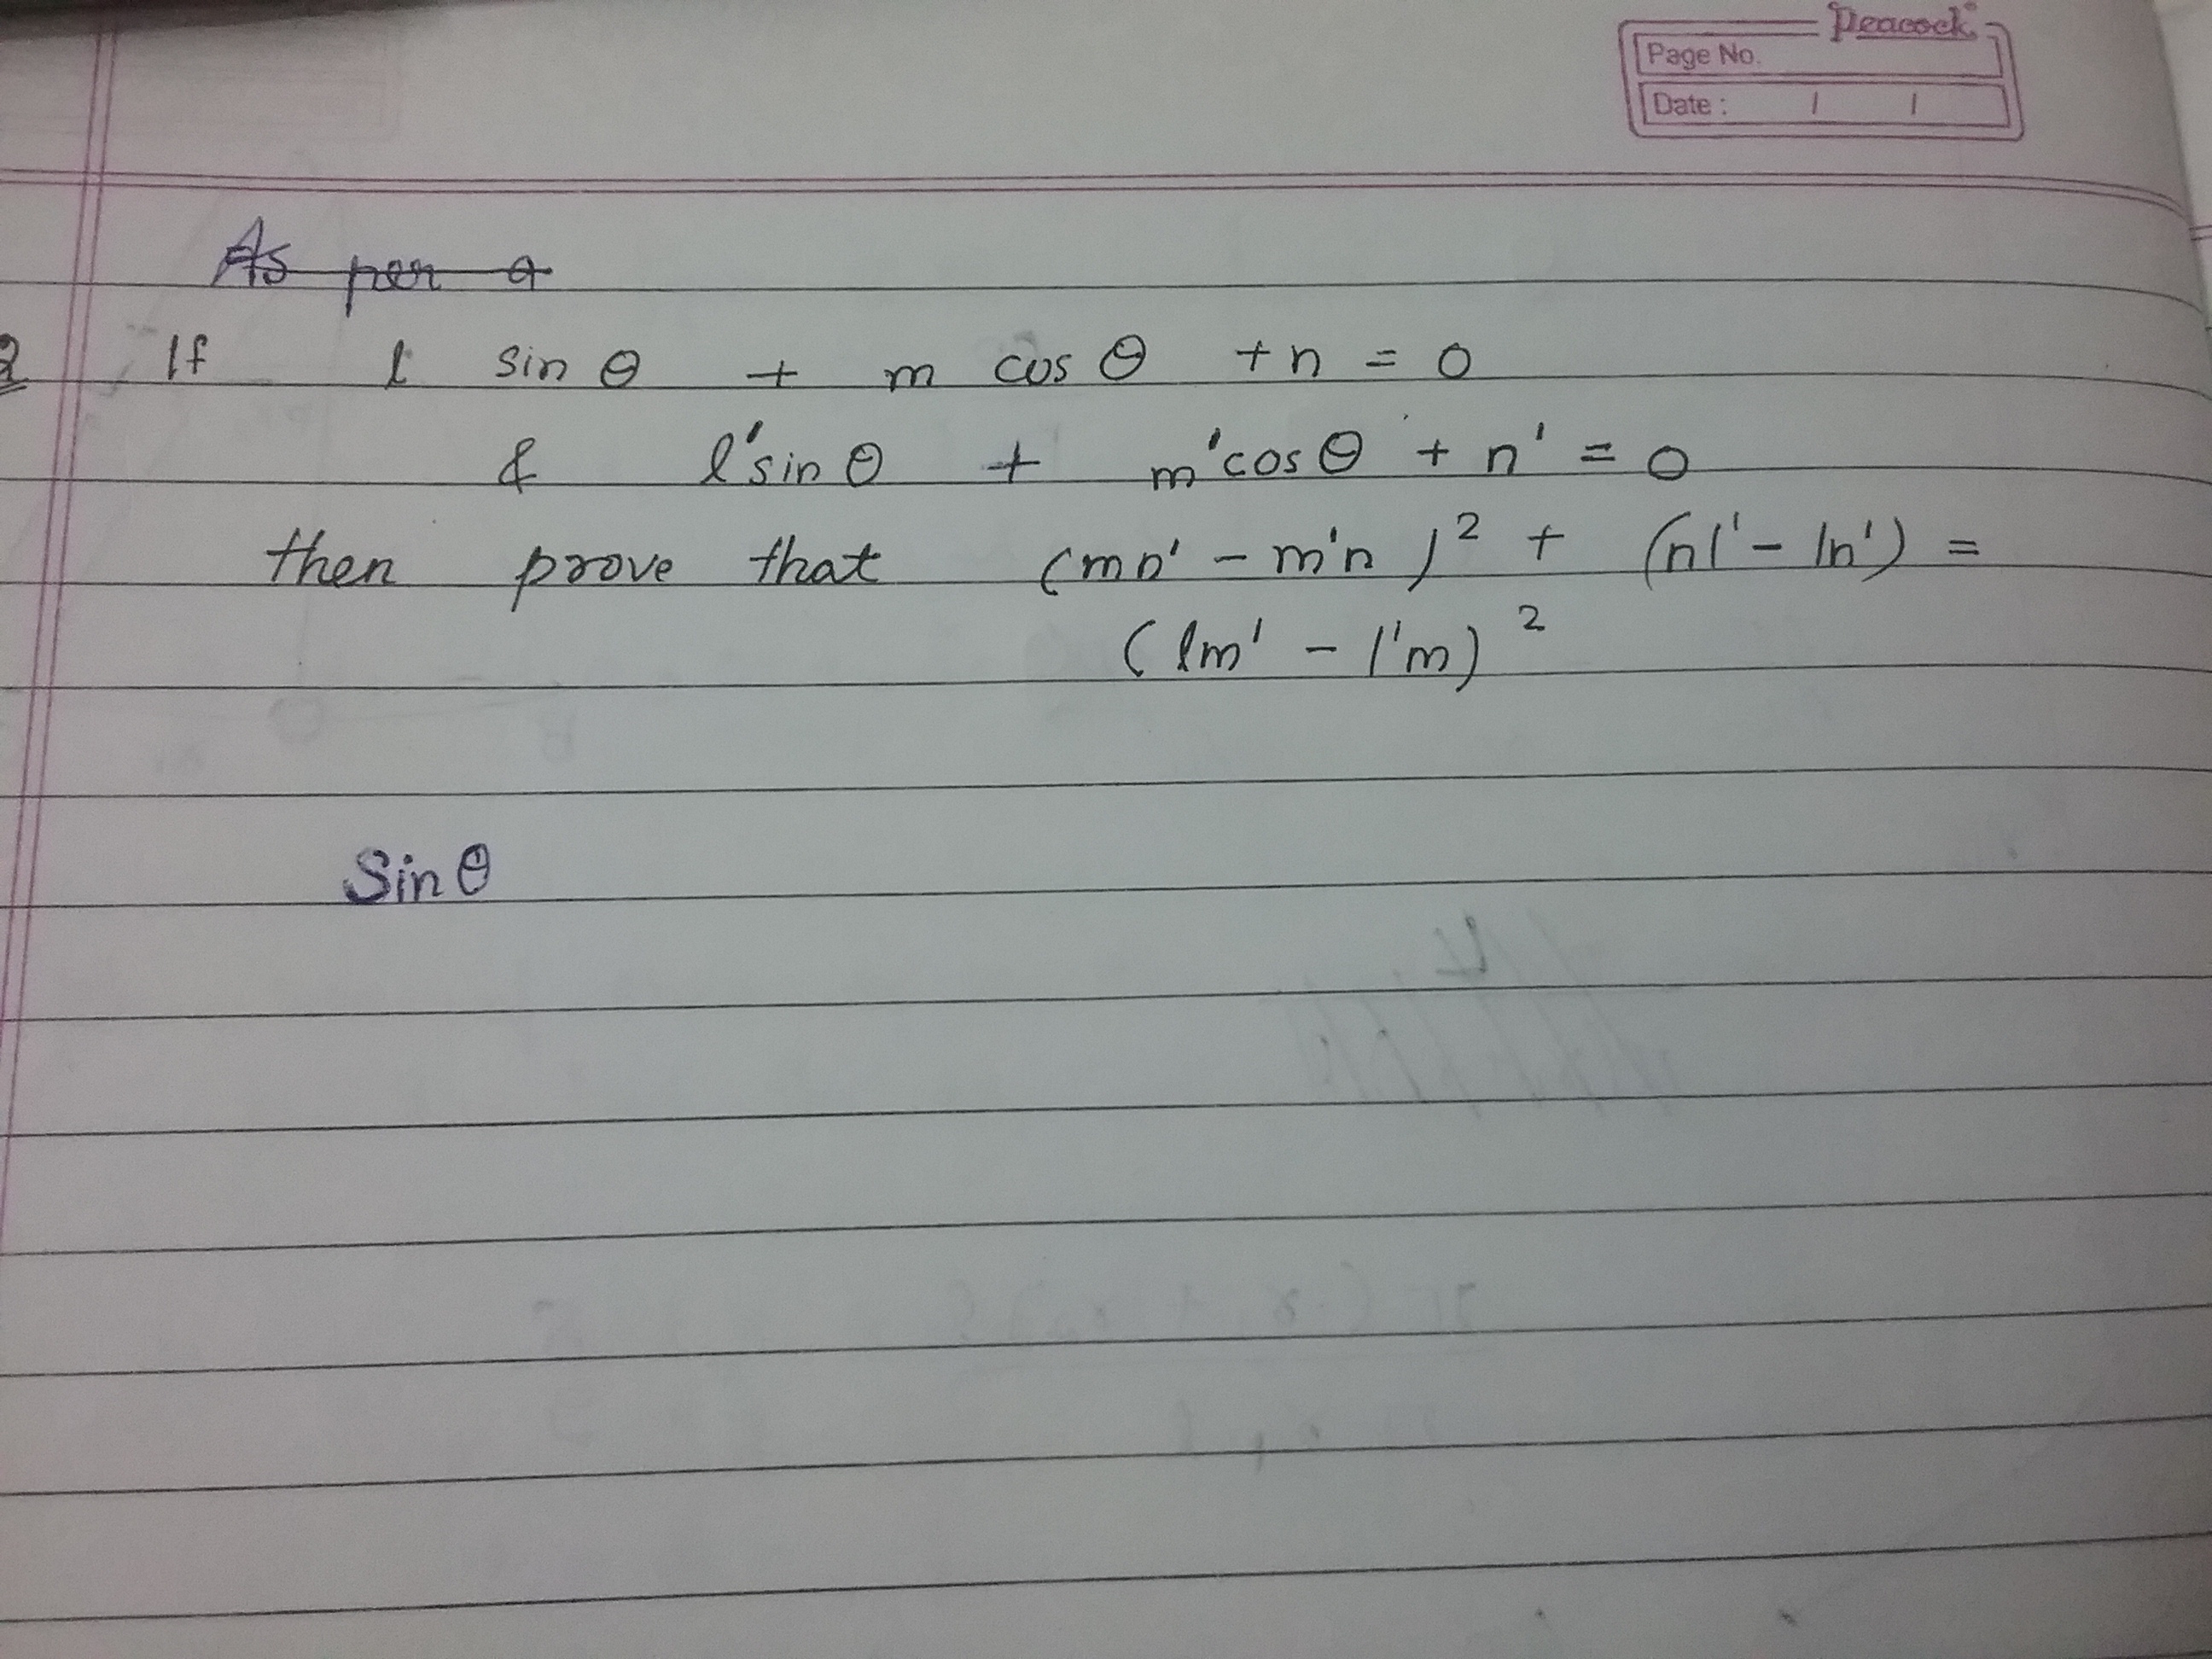 Peacock
Page No.
Date : / /
As per a
2 If l sin θ + m cos θ + n = 0
& l'sin θ + m'cos θ + n' = 0
then prove that (mn' - m'n)² + (nl' - ln') =
(lm' - l'm)²
Sin θ